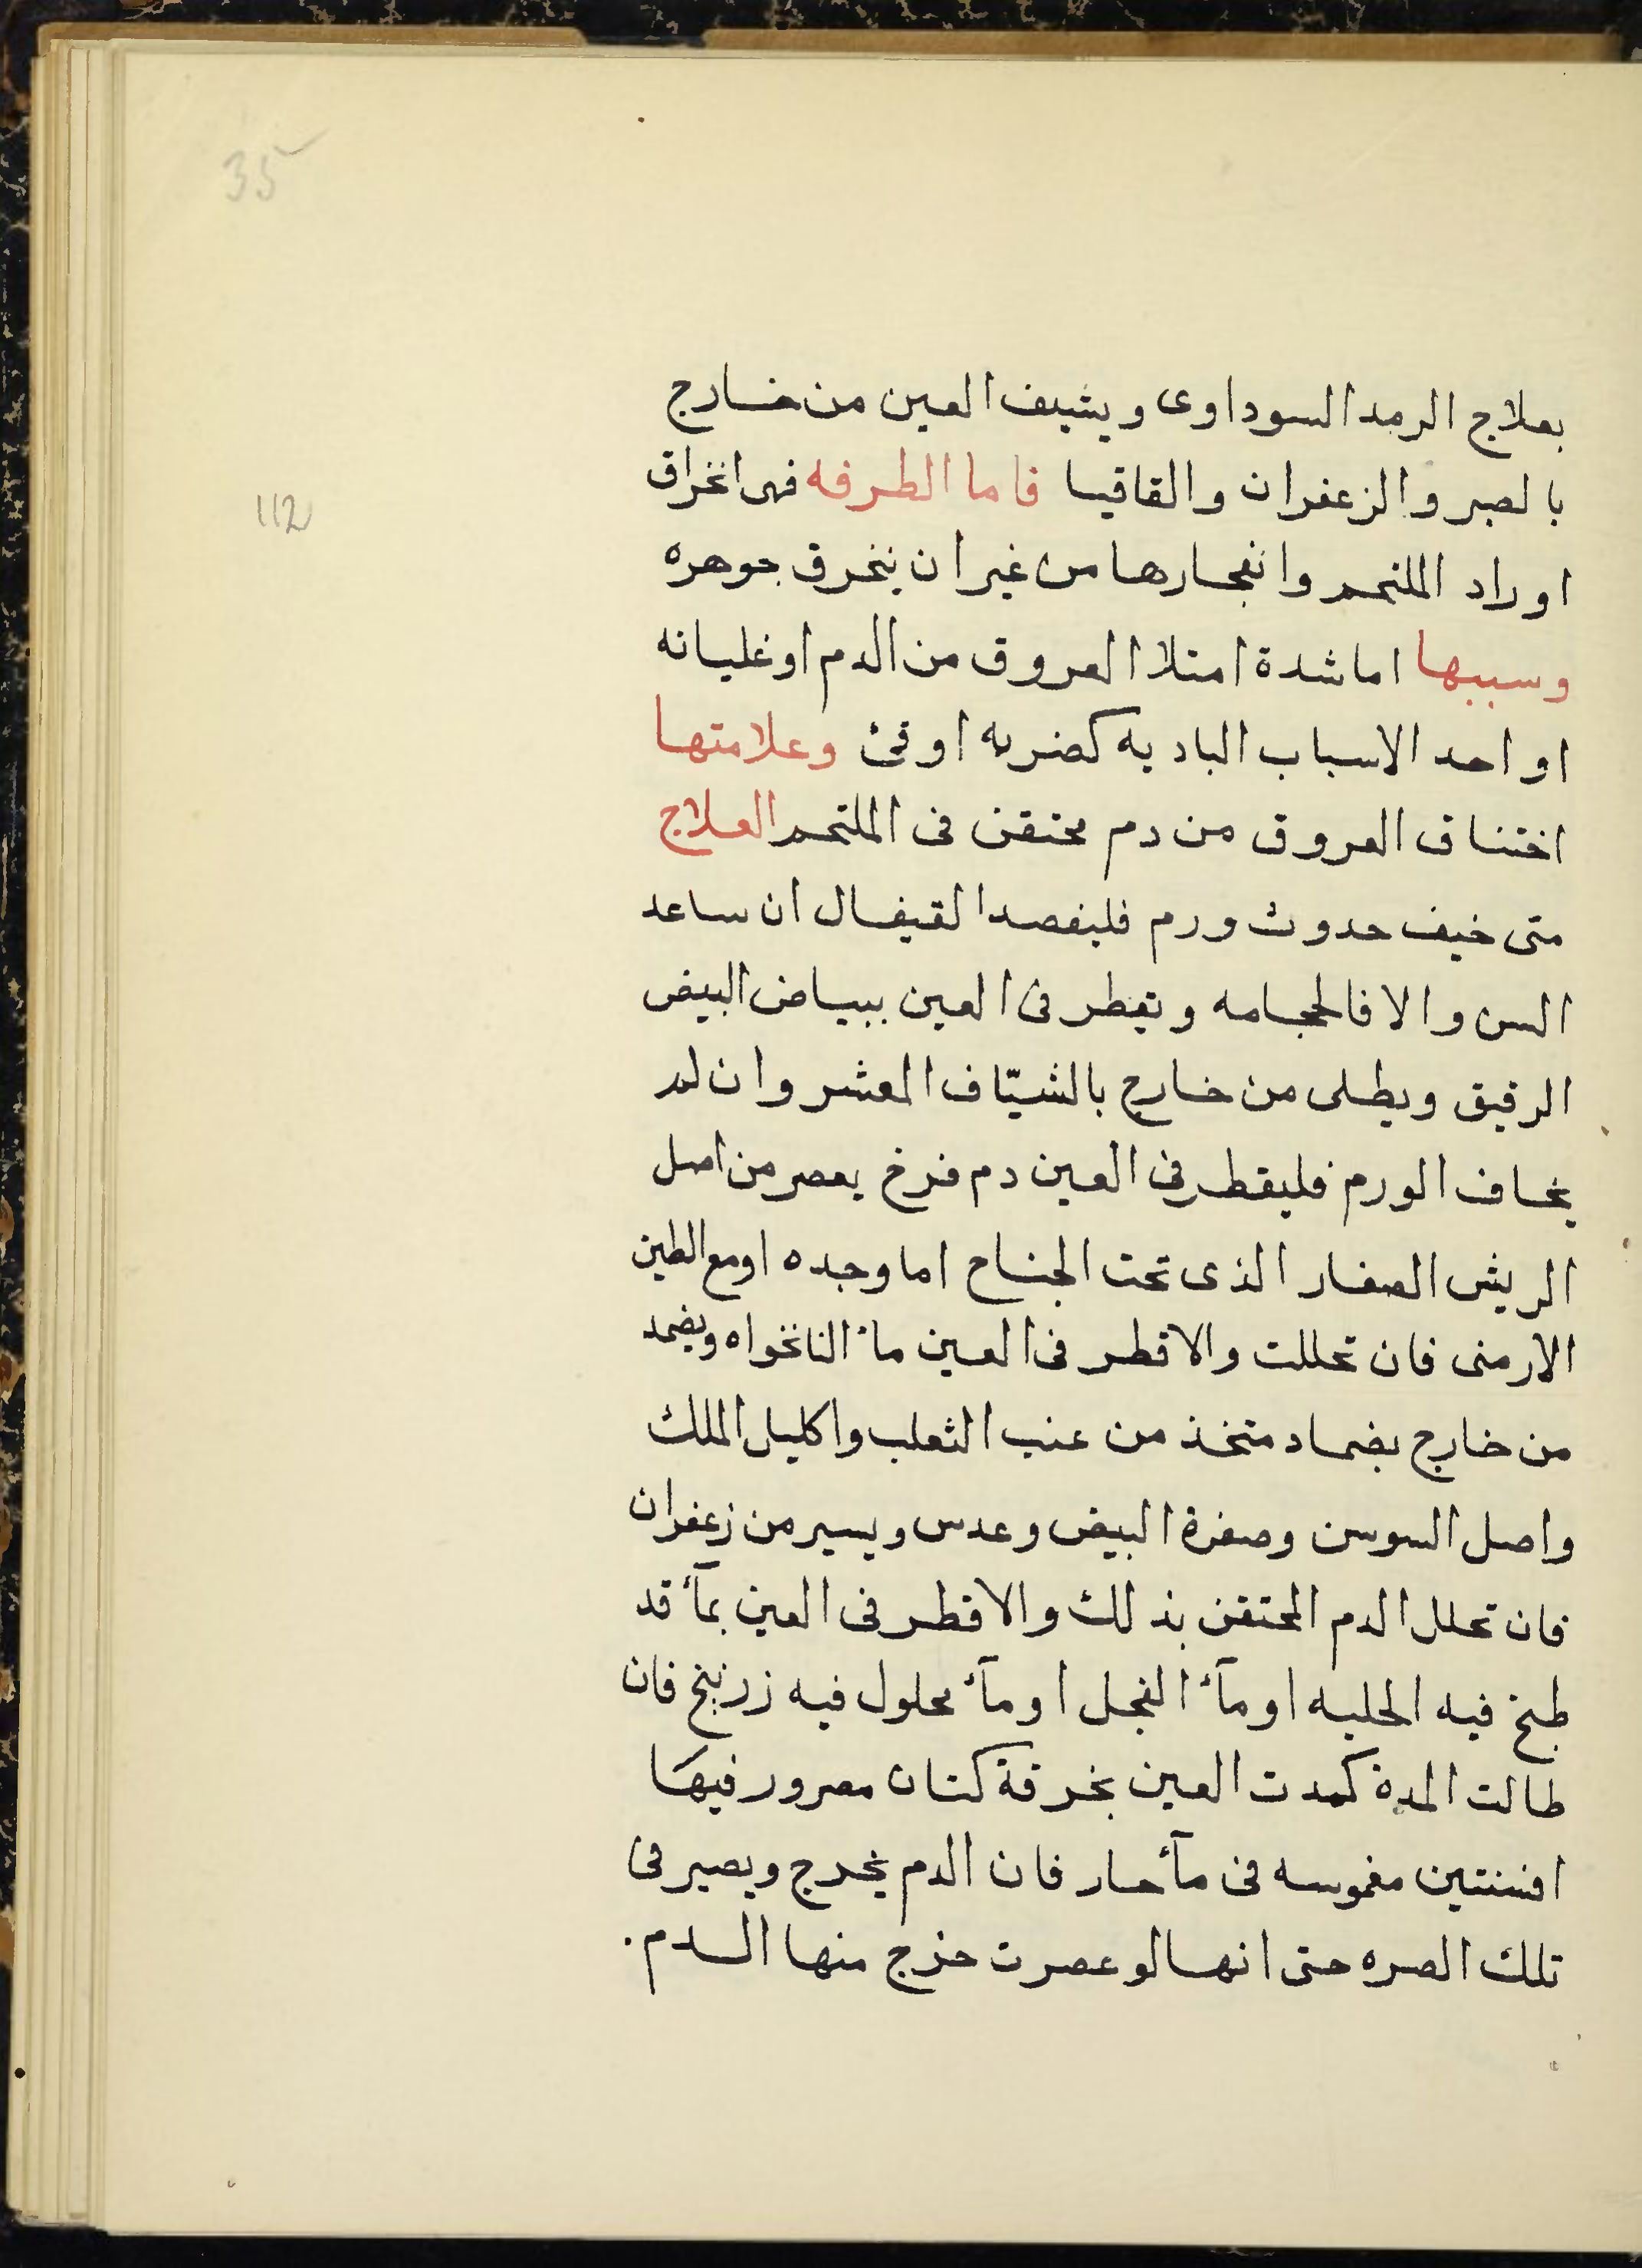 35
بعلاج الرمد السوداوى ويشيف العين من خارج
بالصبر والزعفران والقاقيا فاما الطرفه فهى انخراق
112
اوراد الملتحم وانفجارها من غير ان ينخرق جوهره
وسببها اما شدة امتلا العروق من الدم او غليانه
او احد الاسباب الباديه كضربه او قئ وعلامتها
اختناق العروق من دم محتقن فى الملتحم العلاج
متى خيف حدوث ورم فليفصد القيفال ان ساعد
السن والا فالحجامه وتقطر فى العين ببياض البيض
الرقيق ويطلى من خارج بالشيّاف المعشر وان لم
يخاف الورم فليقطر فى العين دم فرخ يعصر من اصل
الريش الصغار الذى تحت الجناح اما وحده او مع الطين
الارمنى فان تحللت والا قطر فى العين مآء النانخواه ويضمد
من خارج بضماد متخذ من عنب الثعلب واكليل الملك
واصل السوسن وصفرة البيض وعدس ويسير من زعفران
فان تحلل الدم المحتقن بذلك والا قطر فى العين بمآء قد
طبخ فيه الحلبه او مآء الفجل او مآء محلول فيه زرنيخ فان
طالت المدة كمدت العين بخرقة كتان مصرور فيها
افسنتين مغموسه فى مآء حار فان الدم يخرج ويصير فى
تلك الصره حتى انها لو عصرت خرج منها الدم.